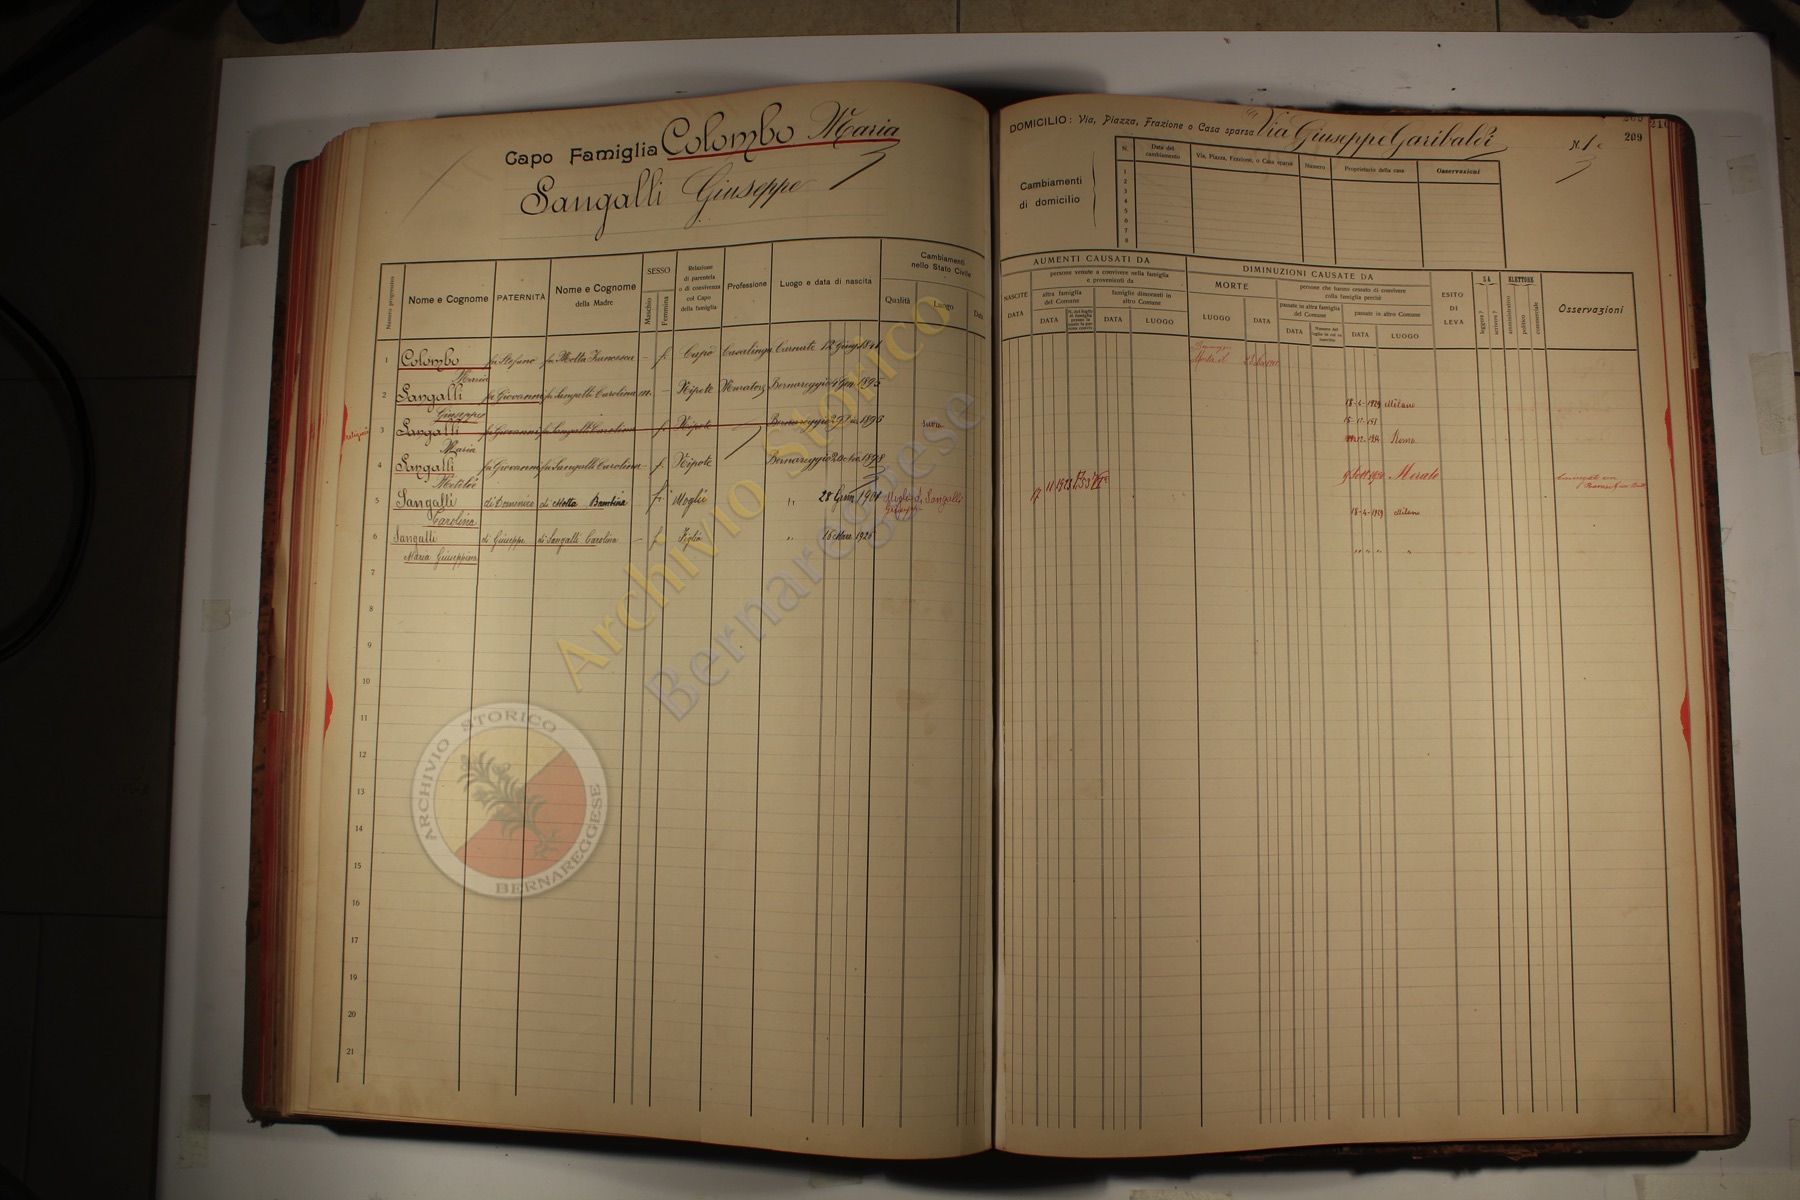 Capo Famiglia Colombo Maria
Sangalli Giuseppe
Numero progressivo
Nome e Cognome
PATERNITÀ
Nome e Cognome
della Madre
SESSO
Maschio
Femmina
Relazione
di parentela
o di convivenza
col Capo
della famiglia
Professione
Luogo e data di nascita
Cambiamenti
nello Stato Civile
Qualità
Luogo
Data
1 Colombo fu Stefano fu Motta Francesca - f. Capo Casalinga Carnate 12 Giug 1841
Maria
2 Sangalli fu Giovanni fu Sangalli Carolina m. - Nipote Muratore Bernareggio
Giuseppe
3 Sangalli fu Giovanni fu Sangalli Carolina f. Nipote Bernareggio 1896 suora
Maria
4 Sangalli fu Giovanni fu Sangalli Carolina - f. Nipote Bernareggio 1898
Matilde
5 Sangalli di Domenico di Motta Bambina f. Moglie " 28 1901 Moglie di Sangalli
Carolina Giuseppe
6 Sangalli di Giuseppe di Sangalli Carolina - f. Figlia "
Maria Giuseppina
7
8
9
10
11
12
13
14
15
16
17
18
19
20
21
DOMICILIO: Via, Piazza, Frazione o Casa sparsa Via Giuseppe Garibaldi N. 1
209
210
Cambiamenti
di domicilio
N.
Data del
cambiamento
Via, Piazza, Frazione, o Casa sparsa
Numero
Proprietario della casa
Osservazioni
1
2
3
4
5
6
7
8
AUMENTI CAUSATI DA
NASCITE
DATA
persone venute a convivere nella famiglia
e provenienti da
altra famiglia
del Comune
DATA
famiglie dimoranti in
altro Comune
DATA
LUOGO
DIMINUZIONI CAUSATE DA
MORTE
LUOGO
DATA
persone che hanno cessato di convivere
colla famiglia perchè
passate in altra famiglia
del Comune
DATA
passate in altro Comune
DATA
LUOGO
ESITO
DI
LEVA
SA
leggere?
scrivere?
ELETTORE
amministrativo
politico
commerciale
Osservazioni
18-4-1929 Milano
Roma
Merate
18-4-1929 Milano
" " " "
Archivio Storico
Bernareggese
ARCHIVIO STORICO
BERNAREGGESE